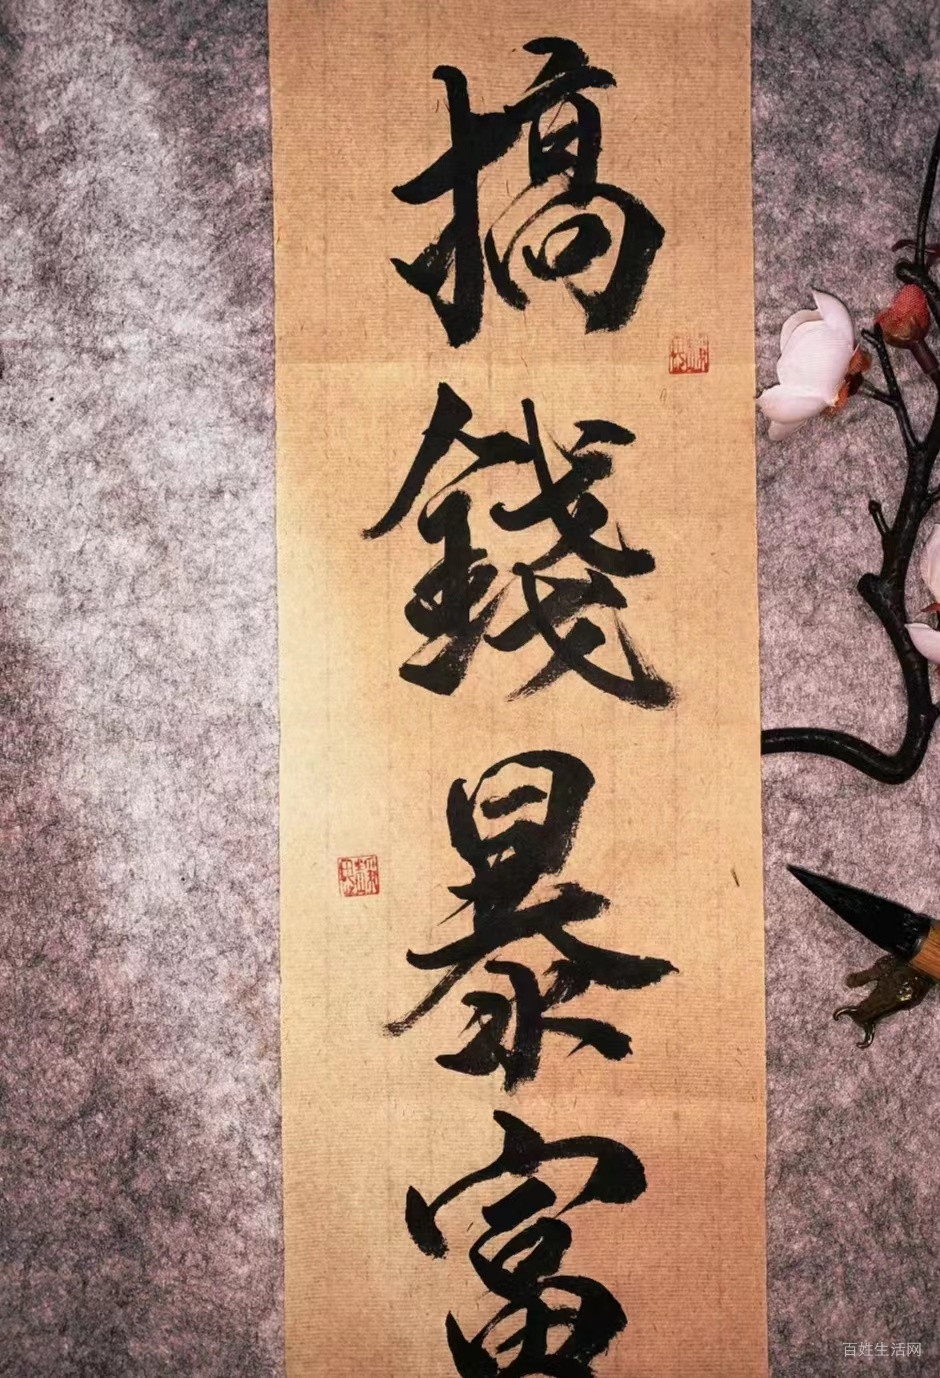 搞錢暴富
百姓生活网